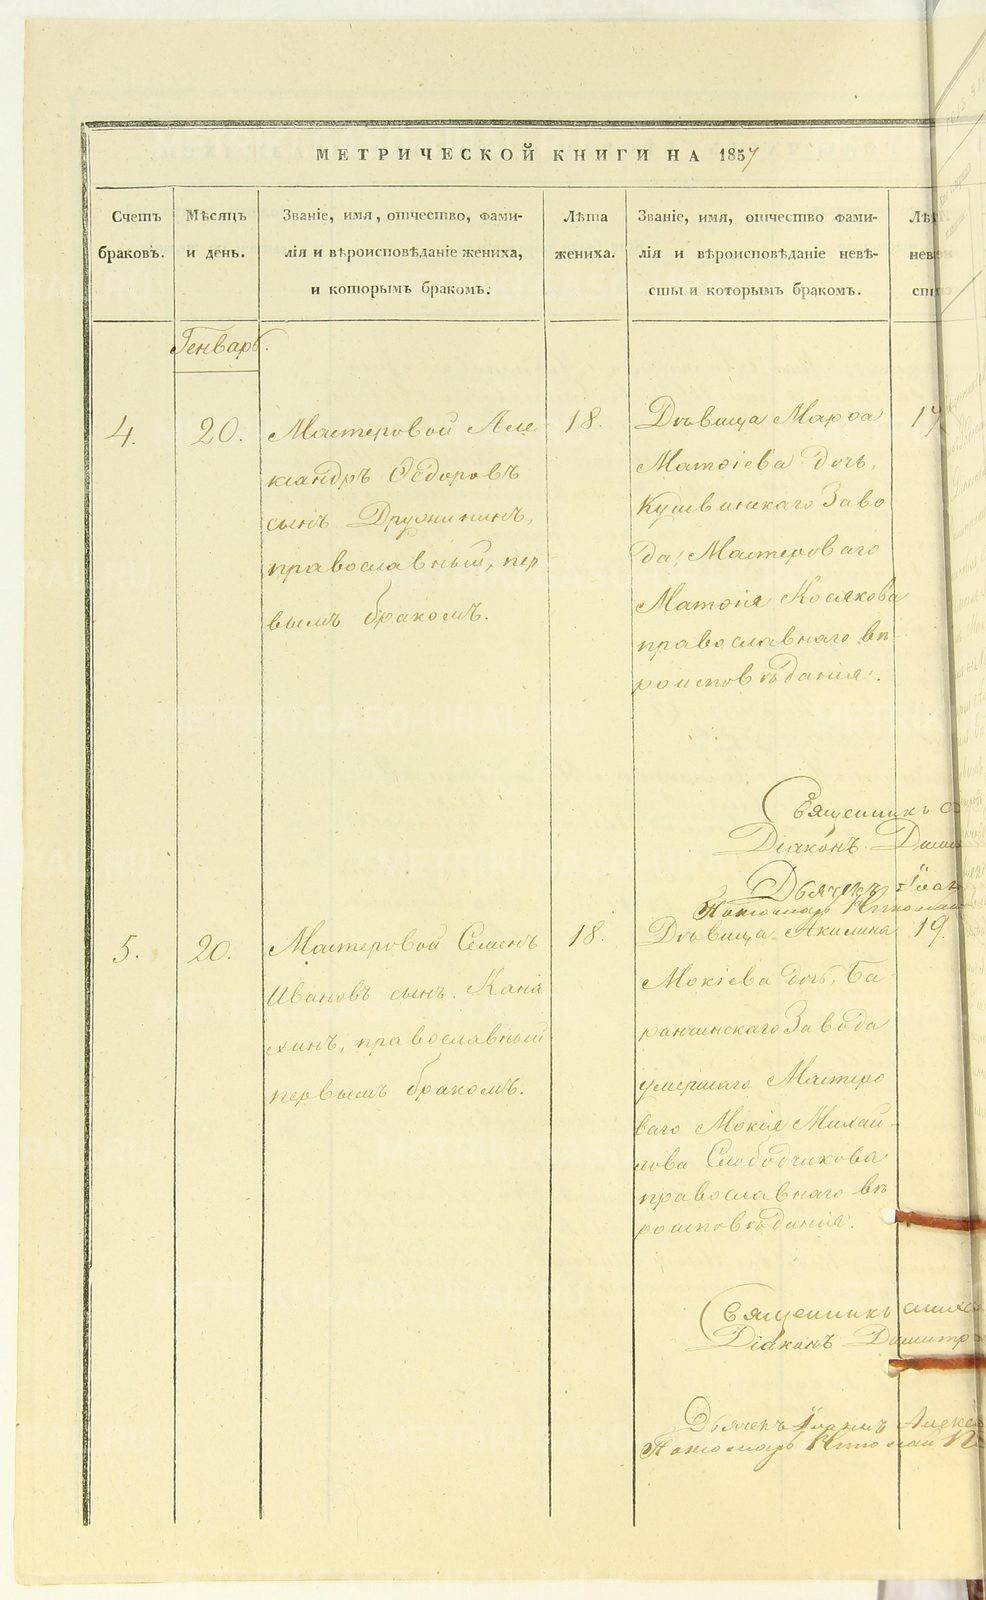 МЕТРИЧЕСКОЙ КНИГИ НА 1857
Счетъ браковъ.
Мѣсяцъ и день.
Званіе, имя, отчество, фами-
лія и вѣроисповѣданіе жениха,
и которымъ бракомъ.
Лѣта жениха.
Званіе, имя, отчество фами-
лія и вѣроисповѣданіе невѣ-
сты и которымъ бракомъ.
Генварь.
4.
20.
Мастеровой Але
ксандръ Ѳедоровъ
сынъ Дружининъ,
православный, пер
вымъ бракомъ.
18.
Дѣвица Марѳа
Матѳіева дочь,
Кушвинскаго Заво
да, Мастероваго
Матѳія Косякова
православнаго вѣ
роисповѣданія.
17
Священникъ
Діаконъ
Дьячекъ
Пономарь Николай
5.
20.
Мастеровой Семенъ
Ивановъ сынъ Каня
хинъ, православный
первымъ бракомъ.
18.
Дѣвица Акилина
Мокіева дочь, Ба
ранчинскаго Завода
умершаго Мастеро
ваго Мокія Михай-
лова Слободчикова
православнаго вѣ
роисповѣданія.
19.
Священникъ
Діаконъ Димитр
Дьячекъ Алекс
Пономарь Николай